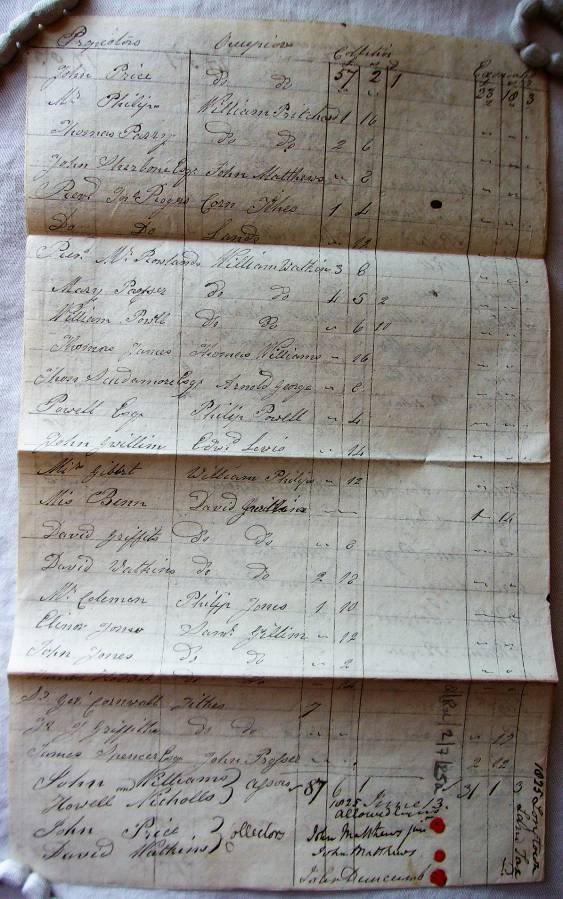 Proprietors Occupiers Collected Exonerated
John Price do do 57 2 1 23 18 3
Mr Philips William Pritchard 1 16
Thomas Parry do do 2 6
John Esqr John Matthews " 8
Revd Jno Rogers Corn Tithes 1 4
Do Do Lands " 12
Revd Mr Rowlands William Watkin 3 8
Mary Prosser do do 4 5 2
William Powll do do " 6 10
Thomas James Thomas Williams " 16
Thos Scudamore Esqr Arnold George " 8
Powell Esqr Philip Powell " 4
John Gwillim Edwd Lewis " 14
William Philips " 12
Mis Benn David 1 14
David Griffiths do do " 8
David Watkins do do 2 18
Mr Coleman Philip Jones 1 10
Elinor Jones Gillim " 12
John Jones do do " 2
do do
Sr Geo Cornwall Tithes 7
Griffiths do do " 12
James Spencer Esqr John Prosser 2 12
John Williams
and Assessors 87 6 1 31 1 3
Howell Nicholls
1825 June 13.
Allowed
John Price
Collectors
David Watkins
John Matthews
John Matthews
John Duncumb
1825
Land Tax